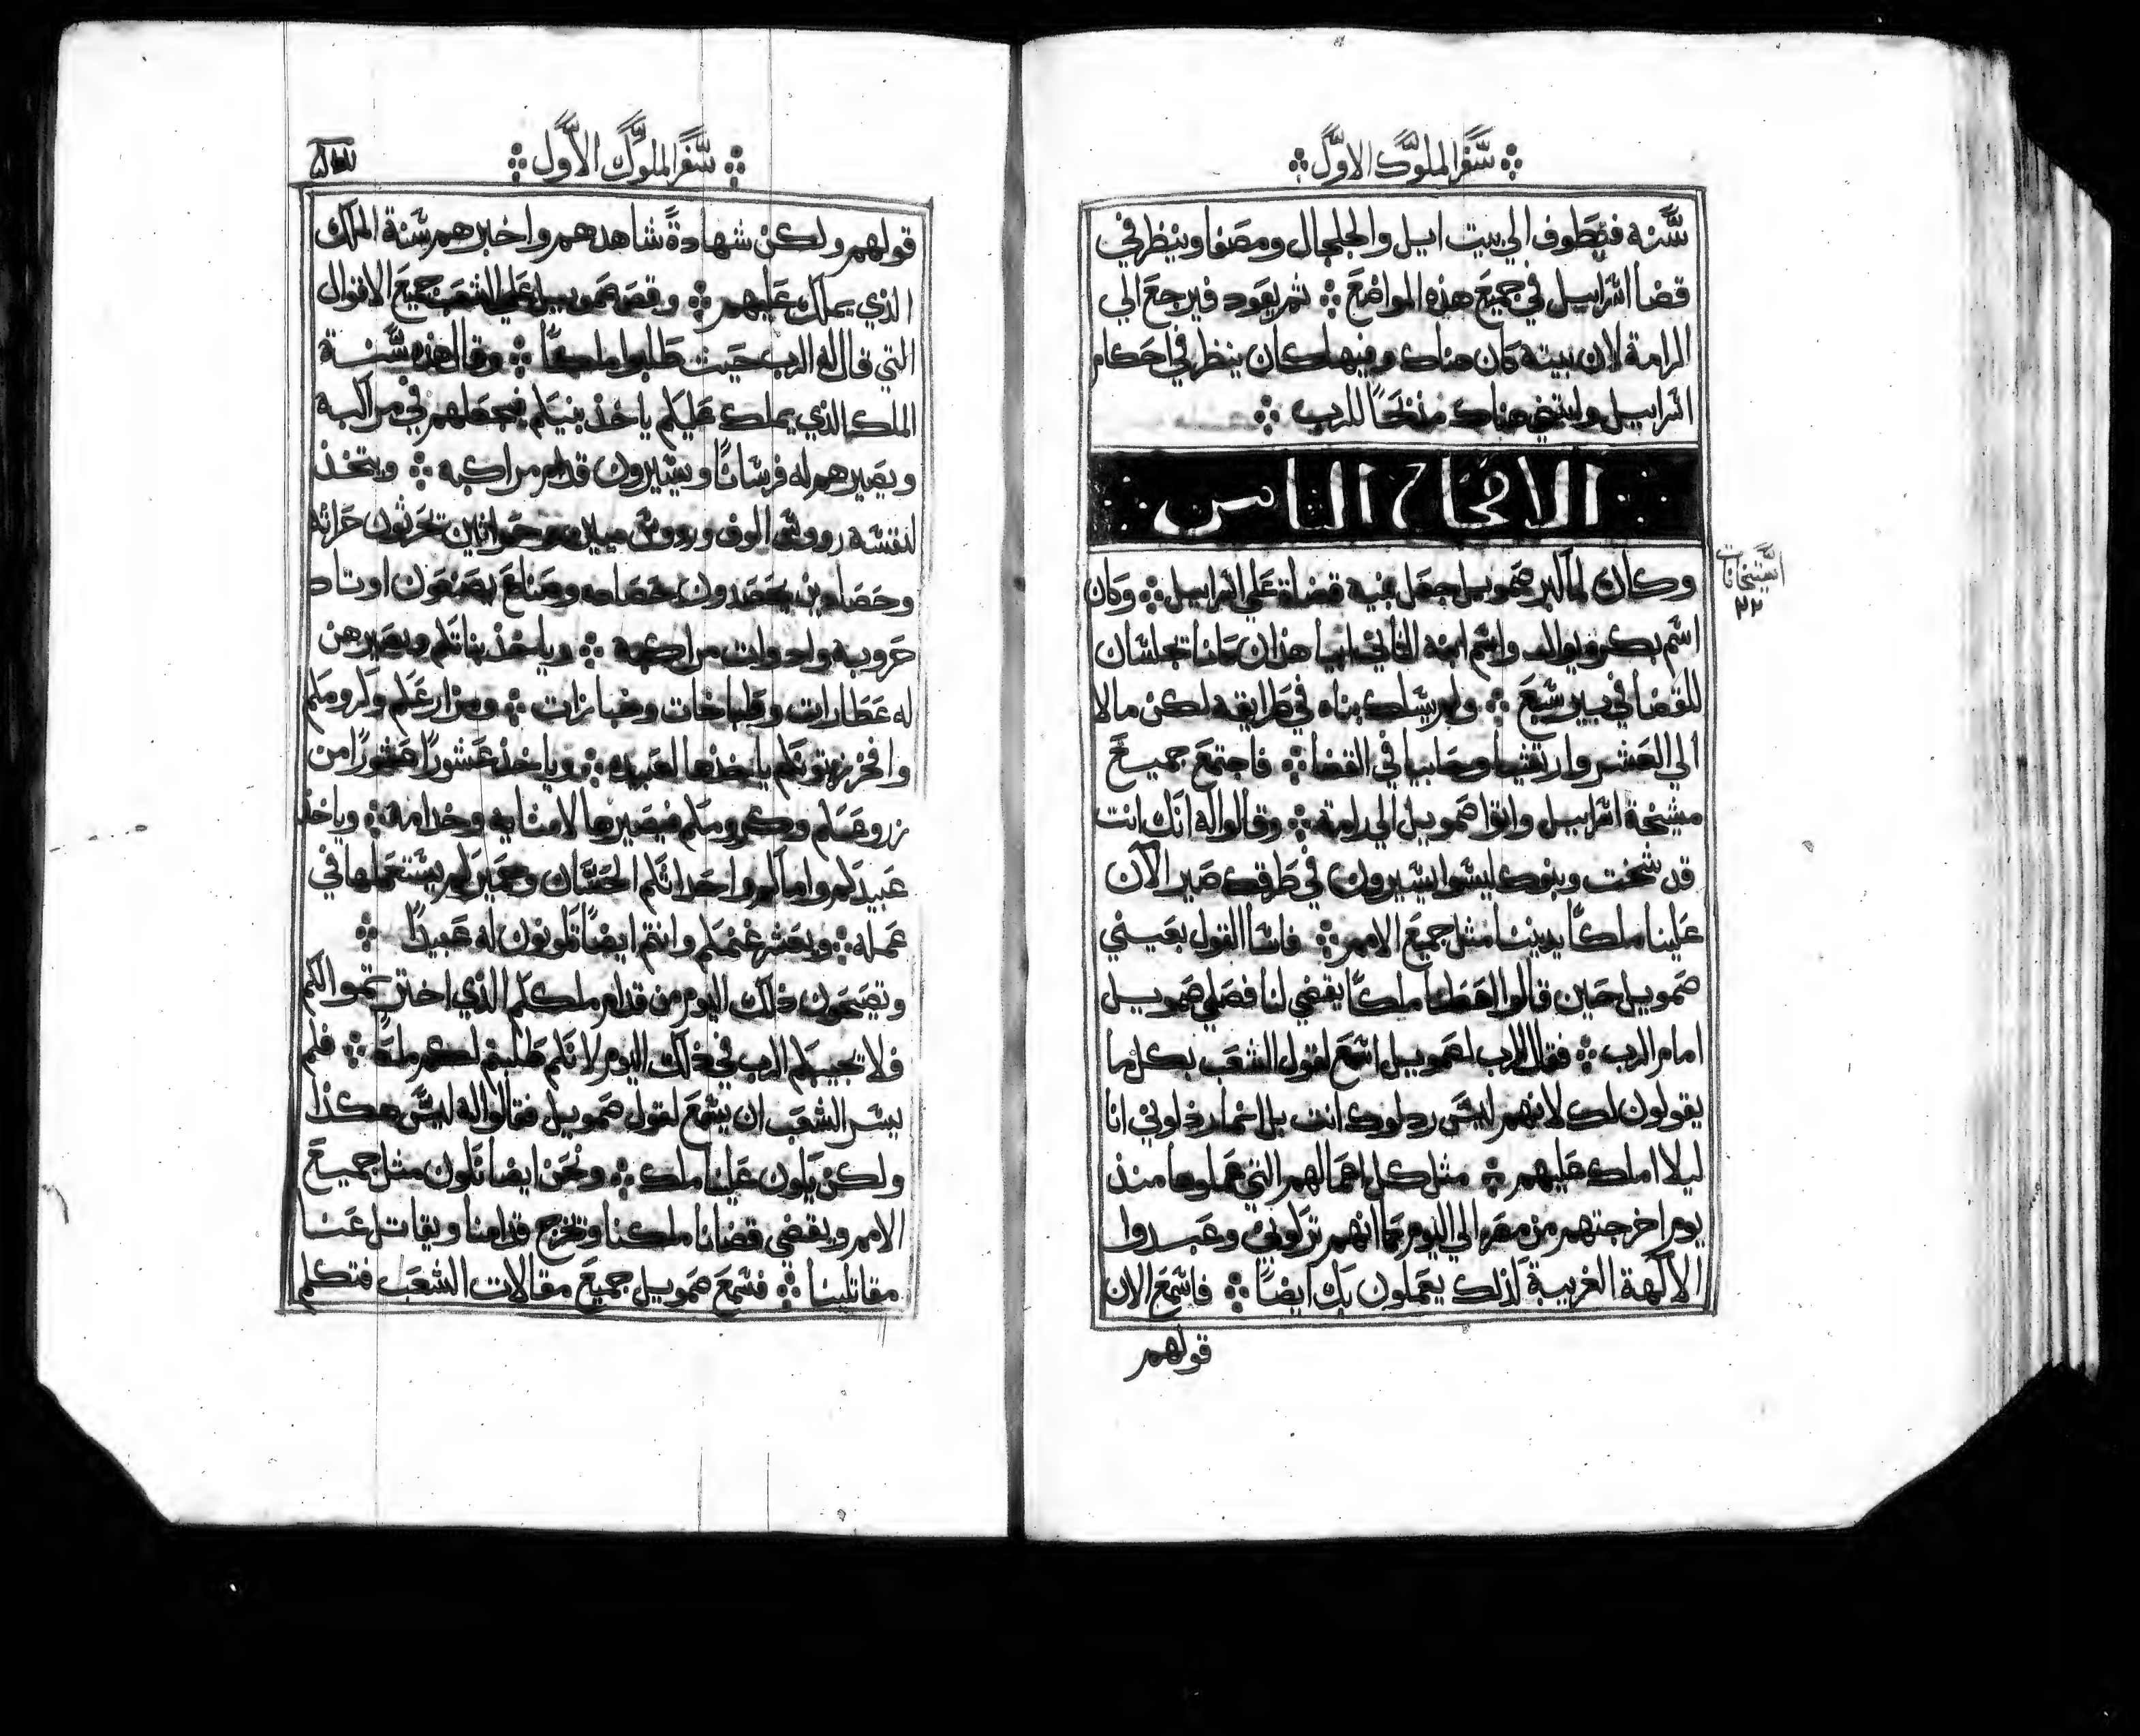 سفر الملوك الاول
سنه فيطوف الي بيت ايل والجلجال ومصفا وينظر في
قضا اسراييل في جميع هذه المواضع ثم يعود فيرجع الي
الرامة لان بيته كان هناك وفيها كان ينظر في احكام
اسراييل وابتني هناك مذبحًا للرب
الاصحاح الثامن
وكان لما كبر صموييل جعل بنيه قضاة علي اسراييل وكان
اسم بكره يوال واسم ابنه الثاني ابيا هذان كانا يجلسان
للقضا في بير سبع ولم يسلك بناه في طرايقه لكن مالا
الي العشر وارتشيا وحابيا في القضا فاجتمع جميع
مشيخة اسراييل واتوا صموييل الي رامة وقالوا له انك انت
قد شخت وبنوك ليسوا يسيرون في طرقك صير الان
علينا ملكًا يديننا مثل جميع الامم فاسا القول بعيني
صموييل حين قالوا اعطنا ملكًا يقضي لنا فصلي صموييل
امام الرب فقال الرب لصموييل اسمع لقول الشعب بكل ما
يقولون لك لانهم ليس رذلوك انت بل انما رذلوني انا
ليلا املك عليهم مثل كل اعمالهم التي عملوها منذ
يوم اخرجتهم من مصر الي اليوم كما انهم تركوني وعبدوا
الالهة الغريبة كذلك يعملون بك ايضًا فاسمع الان
قولهم
استيخانات
٢٢
سفر الملوك الاول
قولهم ولكن شهادةً شاهدهم واخبرهم سنة الملك
الذي يملك عليهم وقص صموييل علي الشعب جميع الاقوال
التي قال له الرب حيث طلبوا ملكًا وقال هذه سنة
الملك الذي يملك عليكم ياخذ بنيكم فيجعلهم في مراكبه
ويصيرهم له فرسانًا ويسيرون قدام مراكبه ويتخذ
لنفسه رووس الوف ورووس ميين وحراثين يحرثون حراثه
وحصادين يحصدون حصاده وصناع يصنعون اوتاد
حروبه وادوات مراكبه وياخذ بناتكم ويصيرهن
له عطارات وطباخات وخبازات ومزارعكم وكرومكم
وافخر زيتونكم ياخذها لعبيده وياخذ عشورًا من
زروعكم وكرومكم فيصيرها لامنايه وخدامه وياخذ
عبيدكم واماكم واحداثكم الحسان وحميركم يستعملها في
عمله ويعشر غنمكم وانتم ايضًا تكونون له عبيدًا
وتصيحون ذلك اليوم من قدام ملككم الذي اخترتموا لكم
فلا تجيبكم الرب في ذلك اليوم لانكم طلبتم لكم ملكًا فلم
يسر الشعب ان يسمع لقول صموييل فقالوا له ليس هكذا
ولكن يكون علينا ملك ونحن ايضا نكون مثل جميع
الامم ويقضي قضانا ملكنا وتخرج قدامنا ويقاتل عنا
مقاتلينا فسمع صموييل جميع مقالات الشعب فتكلم